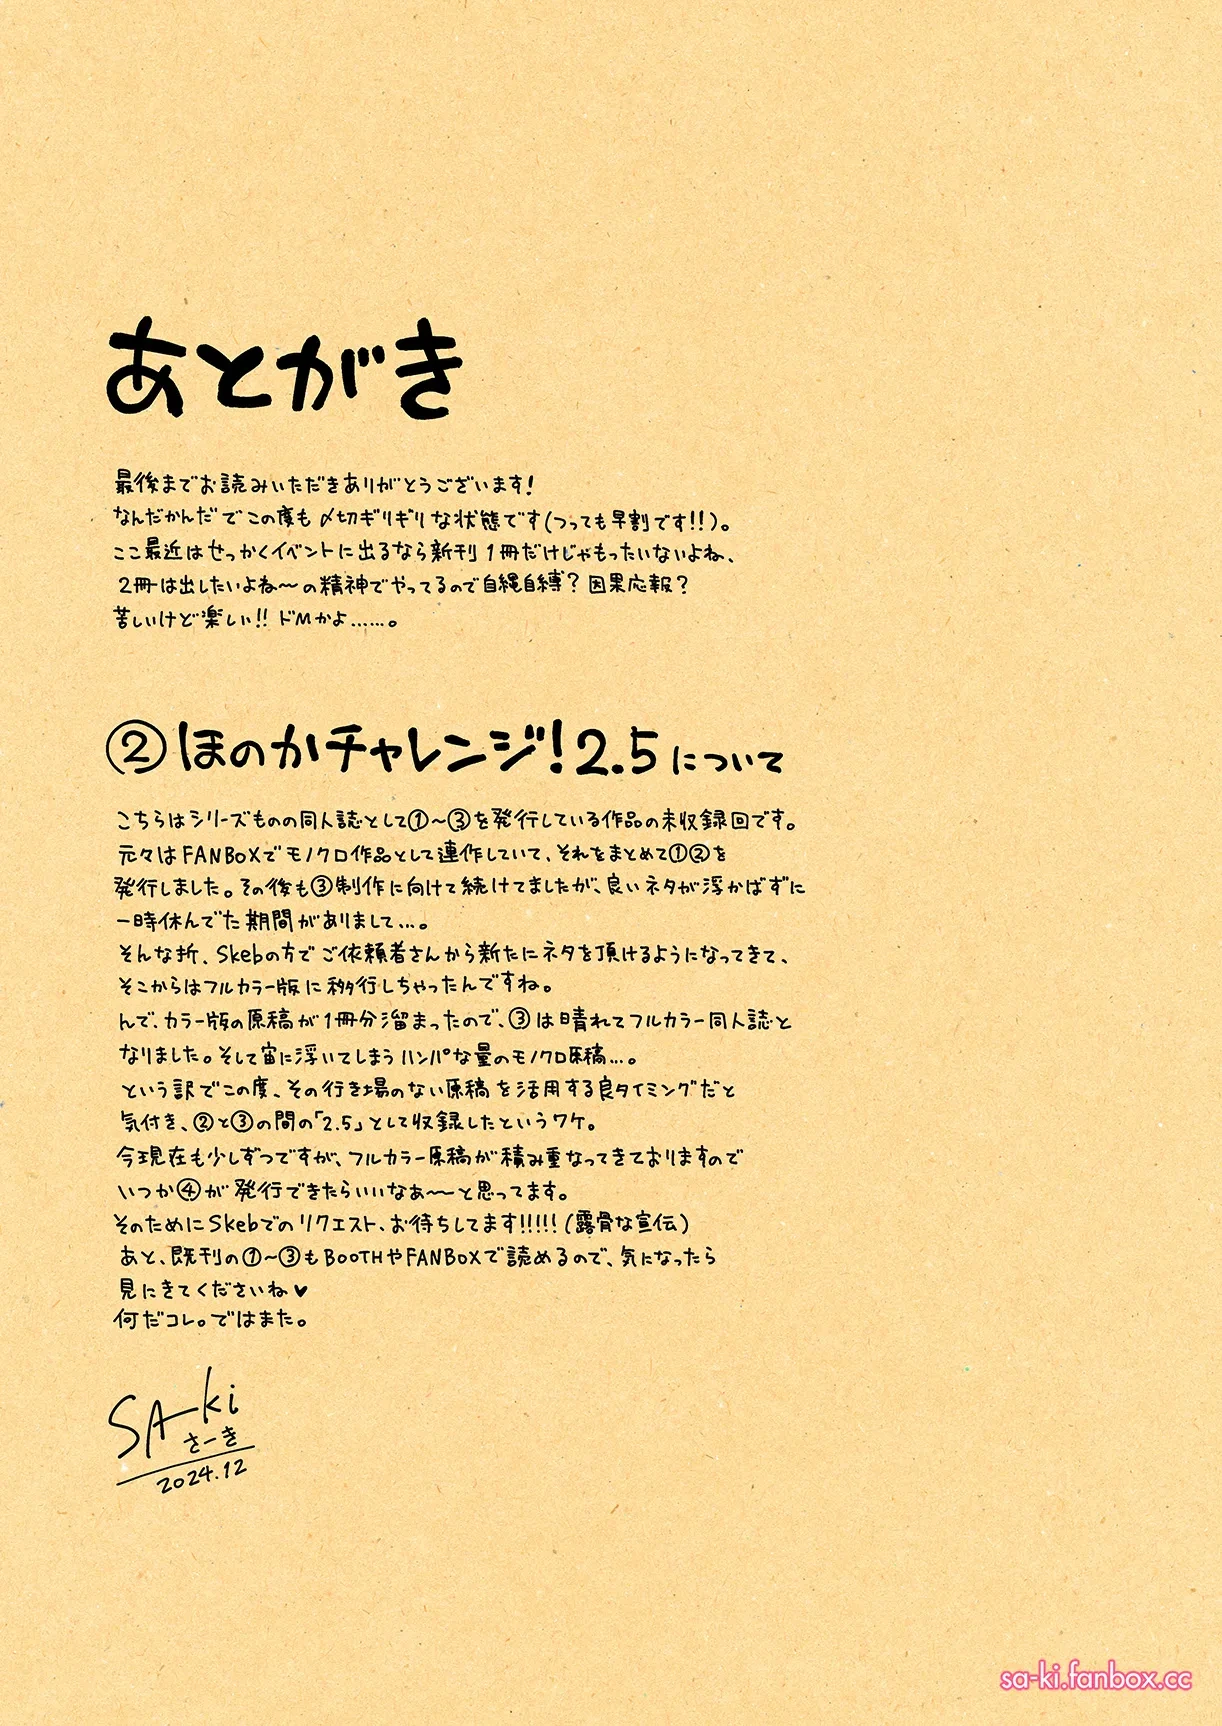 あとがき
最後までお読みいただきありがとうございます!
なんだかんだでこの度も〆切ギリギリな状態です(つっても早割です!!)。
ここ最近はせっかくイベントに出るなら新刊1冊だけじゃもったいないよね、
2冊は出したいよね〜の精神でやってるので自縄自縛?因果応報?
苦しいけど楽しい!!ドMかよ……。
②ほのかチャレンジ!2.5について
こちらはシリーズものの同人誌として①〜③を発行している作品の未収録回です。
元々はFANBOXでモノクロ作品として連作していて、それをまとめて①②を
発行しました。その後も③制作に向けて続けてましたが、良いネタが浮かばずに
一時休んでた期間がありまして…。
そんな折、Skebの方でご依頼者さんから新たにネタを頂けるようになってきて、
そこからはフルカラー版に移行しちゃったんですね。
んで、カラー版の原稿が1冊分溜まったので、③は晴れてフルカラー同人誌と
なりました。そして宙に浮いてしまうハンパな量のモノクロ原稿…。
という訳でこの度、その行き場のない原稿を活用する良タイミングだと
気付き、②と③の間の「2.5」として収録したというワケ。
今現在も少しずつですが、フルカラー原稿が積み重なってきておりますので
いつか④が発行できたらいいなぁ〜〜と思ってます。
そのためにSkebでのリクエスト、お待ちしてます!!!!!(露骨な宣伝)
あと、既刊の①〜③もBOOTHやFANBOXで読めるので、気になったら
見にきてくださいね♥
何だコレ。ではまた。
SA-ki
さーき
2024.12
sa-ki.fanbox.cc